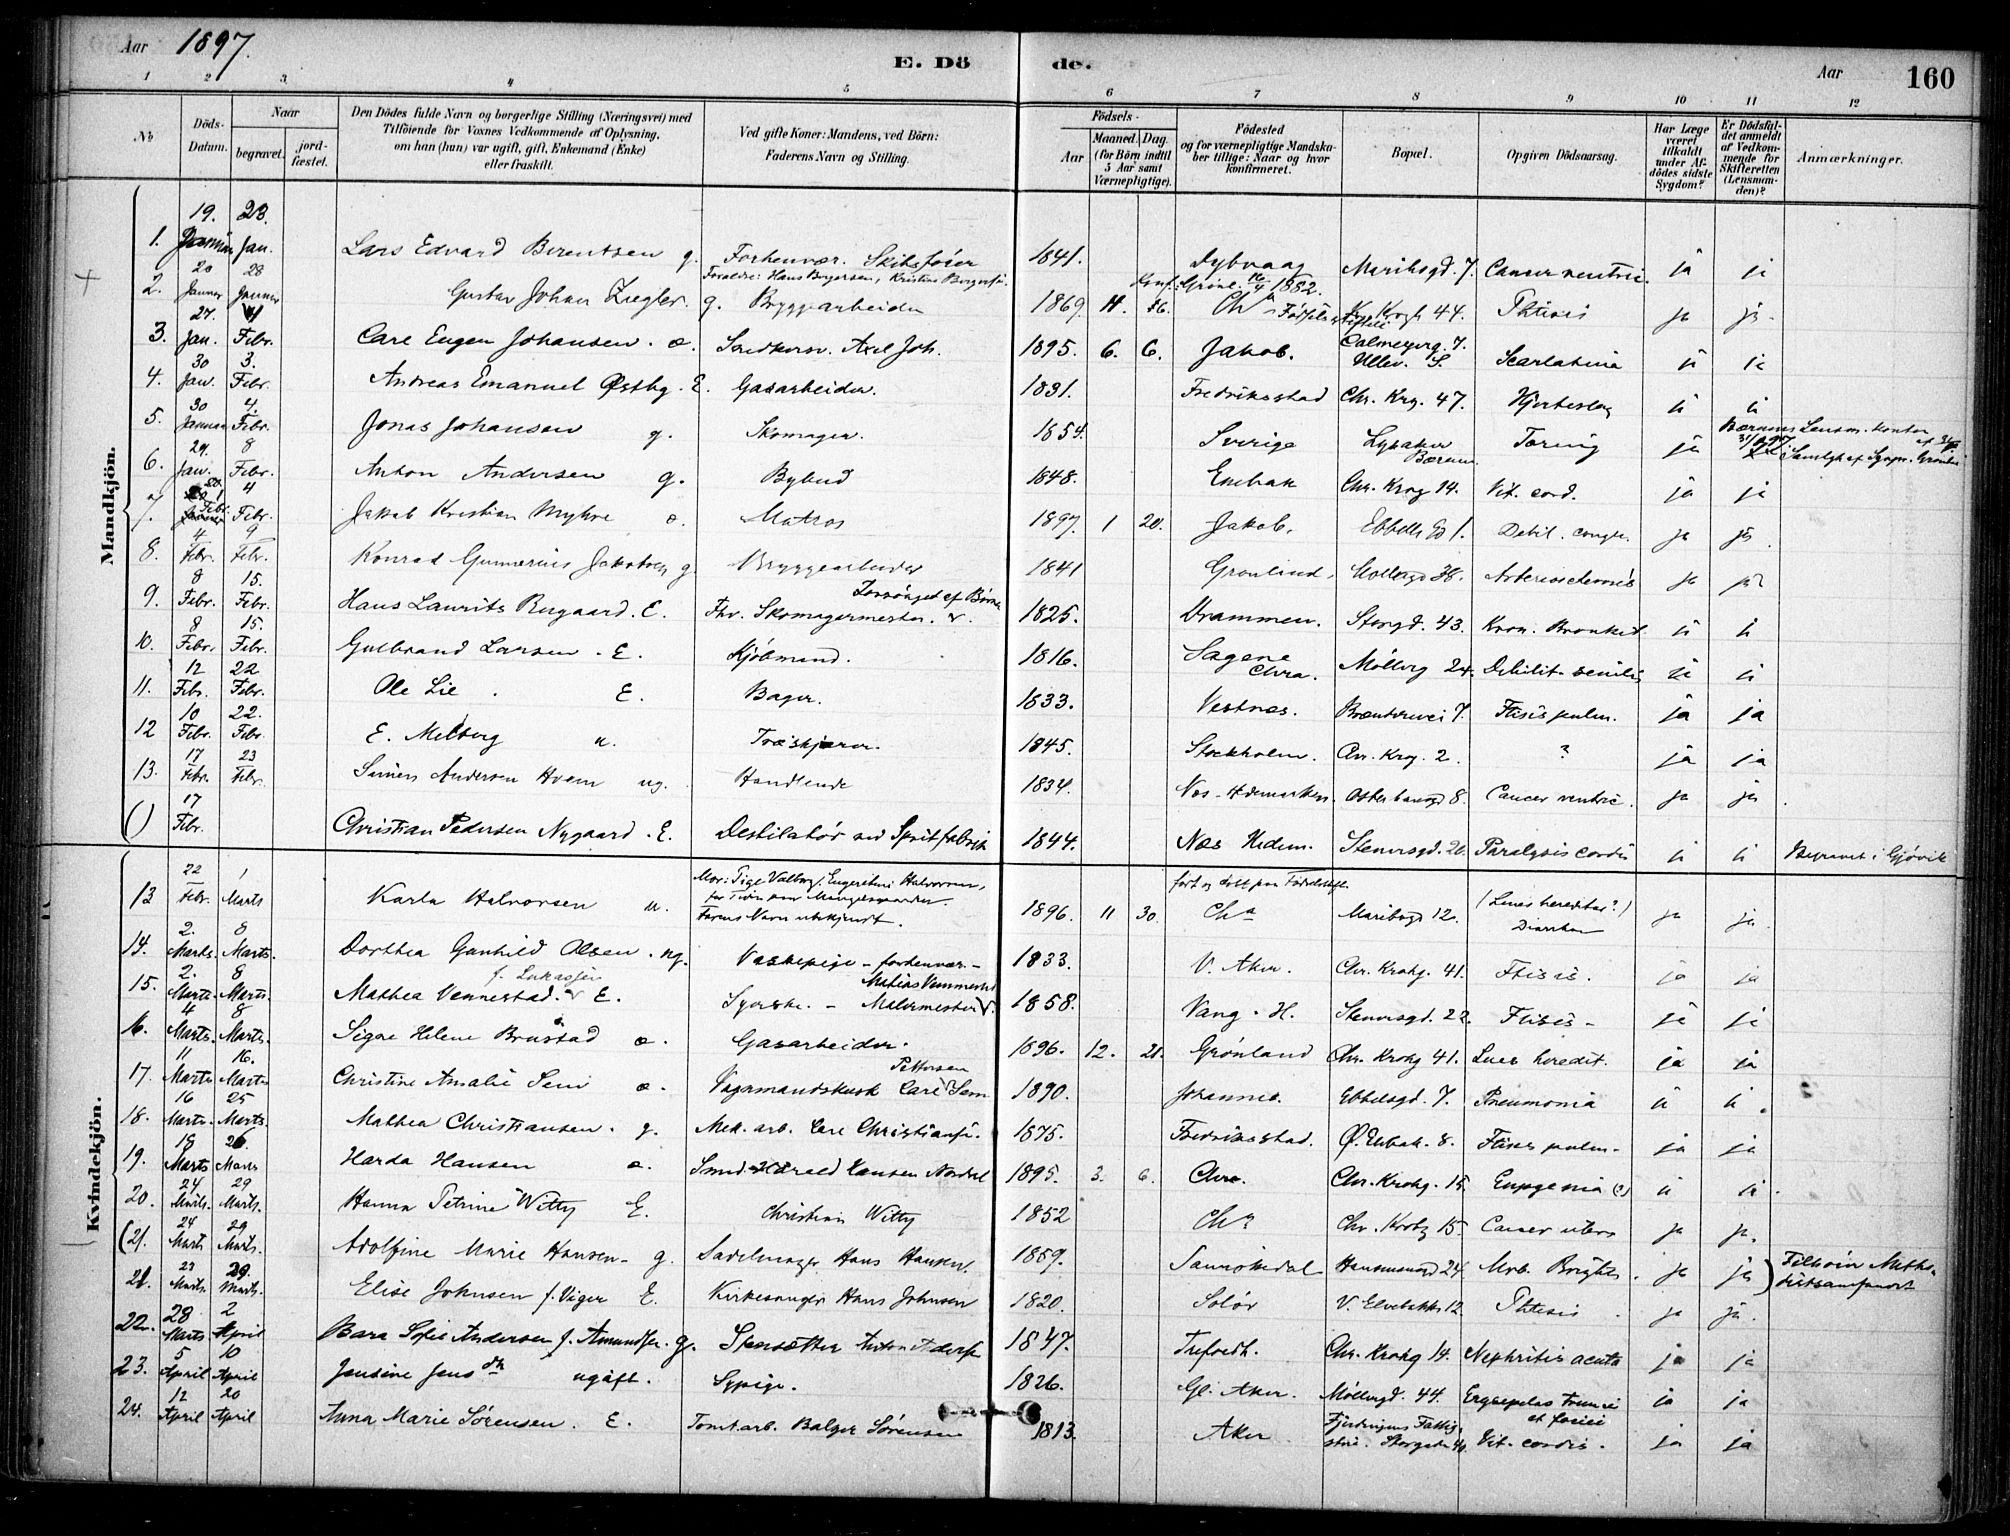 Aar 1897.
E. Döde.
Aar 160
1 2 3 4 5 6 7 8 9 10 11 12
№
Döds-Datum.
Naar
begravet. jordfæstet.
Den Dödes fulde Navn og borgerlige Stilling (Næringsvei) med Tilföiende for Voxnes Vedkommende af Oplysning, om han (hun) var ugift, gift, Enkemand (Enke) eller fraskilt.
Ved gifte Koner: Mandens, ved Börn: Faderens Navn og Stilling.
Födsels-
Aar Maaned. Dag. (for Börn indtil 5 Aar samt Værnepligtige).
Födested og for værnepligtige Mandskaber tillige: Naar og hvor konfirmeret.
Bopæl.
Opgiven Dödsaarsag.
Har Læge været tilkaldt under Afdödes sidste Sygdom?
Er Dödsfaldet anmeldt af Vedkommende for Skifteretten (Lensmanden)?
Anmærkninger.
Mandkjön.
1. 19. Januar 23. Jan. Lars Edvard Berentsen g. Forhenvær. Skibsfører 1841. Dybvaag Maribogd. 7. Cancer ventric. ja ja
2. 20 Januar 28 Januar Gustav Johan Ziegler. g. Bryggearbeider 1869 Ch. Kr. Krogh 44. Phtisis ja ja.
3. 27. Jan. Febr. Carl Eugen Johansen. Axel Joh. 1895. 6. 6. Jakob. Calmeyerg. 7. Ullev. S. Scarlatina ja ja
4. 30 Jan. 3. Febr. Andreas Emanuel Østbg. E. Gasarbeider. 1831. Fredrikstad Chr. Krg. 47. Hjerteslag ja ja
5. 30 Januar 4. Febr. Jonas Johansen g. Skomager. 1854. Sverige Lysaker Bærum. Tæring ja Bærums Lensm. kontor
6. 29. Jan. 8 Febr. Anton Andersen g. Bybud 1848. Enebak Chr. Krog 14. Vit. cord. ja ja
7. Febr. 4 Febr. Jakob Kristian Myhre Matros 1897. 1 20. Jakob. Ebbells Gd 1. Debil. congen. ja ja.
8. 4 Febr. 9 Febr. Konrad Gunnerius Jakobsen g. Bryggearbeider 1841 Grønland Mollergd 38. ja ja
9. 8 Febr. 15. Febr. Hans Laurits Rugaard. E. Fhv. Skomagermester. Forsørget af Børn 1825. Drammen. Storgd. 43. Kron. Bronkit ja ja
10. 8 Febr. 15. Febr. Gulbrand Larsen. E. Kjøbmand. 1816. Sagene Chra. Møllerg 24. Debilit. senilis ja ja
11. 12 Febr. 22 Febr. Ole Lie. E. Bager. 1833. Vestnes. 7. Ftisis pulm. ja ja
12 10 Febr. 22. Febr. E. Melberg u. Træskjærer. 1845. Stockholm. Chr. Krog. 2. ? ja ja
13. 17 Febr. 23 Febr. Andersen Hvem ug. Handlende 1834. Nes-Hedemarken. 8. Cancer ventric. ja ja
() 17 Febr. Christian Pedersen Nygaard. E. Destilatør ved Spritfabrik 1844. Næs Hedem. Stenersgd. 20. Paralysis cordis ja ja Begravet i Gjøvik
Kvindekjön.
13 22 Febr. 1 Marts Karla Halvorsen u. Mor: Pige Valborg Halvorsen, Farens Navn ubekjendt. 1896. 11 30. Cha Maribogd 12. (Lues hereditas?) Diarrhea ja ja
14. 2. Marts. 8 Marts. Dorthea Gunhild Olsen. ug. Vaskepige - forhenvær. - 1833. V. Aker. Chr. Krohg. 41. Ftisis. ja ja
15. 2. Marts. 8 Marts. Mathea Vennestad. f. Lukassen E. Syerske. - Malermester 1858. Vang. H. Stenersgd. 22. Ftisis - ja ja
16. 4 Marts. 8 Marts. Signe Helene Brustad Gasarbeider. 1896. 12. 21. Grønland Chr. Krohg 41. Lues heredit. ja ja
17. 11 Marts 16. Marts Christine Amalie Sem Vognmandskusk Carl Pettersen Sem 1890. Johannes. Ebbelsgd. 7. Pneumonia ja ja
18. 16 Marts. 25 Marts. Mathea Christiansen. g. Mek. arb. Carl Christians. 1875. Fredrikstad. Ø. Enbak. 8. Ftisis pulm. ja ja
19. 18 Marts 26 Marts Harda Hansen Smed Harald Hansen Nordal 1895. 3. 6. Chra. Chr. Krohg. 15. (?) ja ja.
20. 24 Marts. 29 Marts. Hanna Petrine Witty E. Christian Witty 1852 Cha Chr. Krohg 15. Cancer uteri ja ja.
(21. 24 Marts 29 Marts. Adolfine Marie Hansen. g. Sadelmager Hans Hansen. 1859. Sannikedal 24. Mrb. Brightii. ja ja
21. 23 Marts. 29. Marts. Elise Johnsen f. Viger E. Kirkesanger Hans Johnsen 1820. Solør V. Elvebakke 12. Phtisis ja ja.
22. 28 Marts 2 April Bara Sofie Andersen f. Amundsen. g. Stensætter Anton Anders. 1847. Chr. Krohg 14. Nephritis acuta ja ja
23. 5 April 10 April Jensine Jensdtr ugift. Sypige. 1826. Gl. Aker. Møllergd. 44. ja ja
24. 12 April 20 April Anna Marie Sørensen. E. Tomtarb. Balzer Sørensen 1813. Aker Storgaden Vit. cordis. ja ja